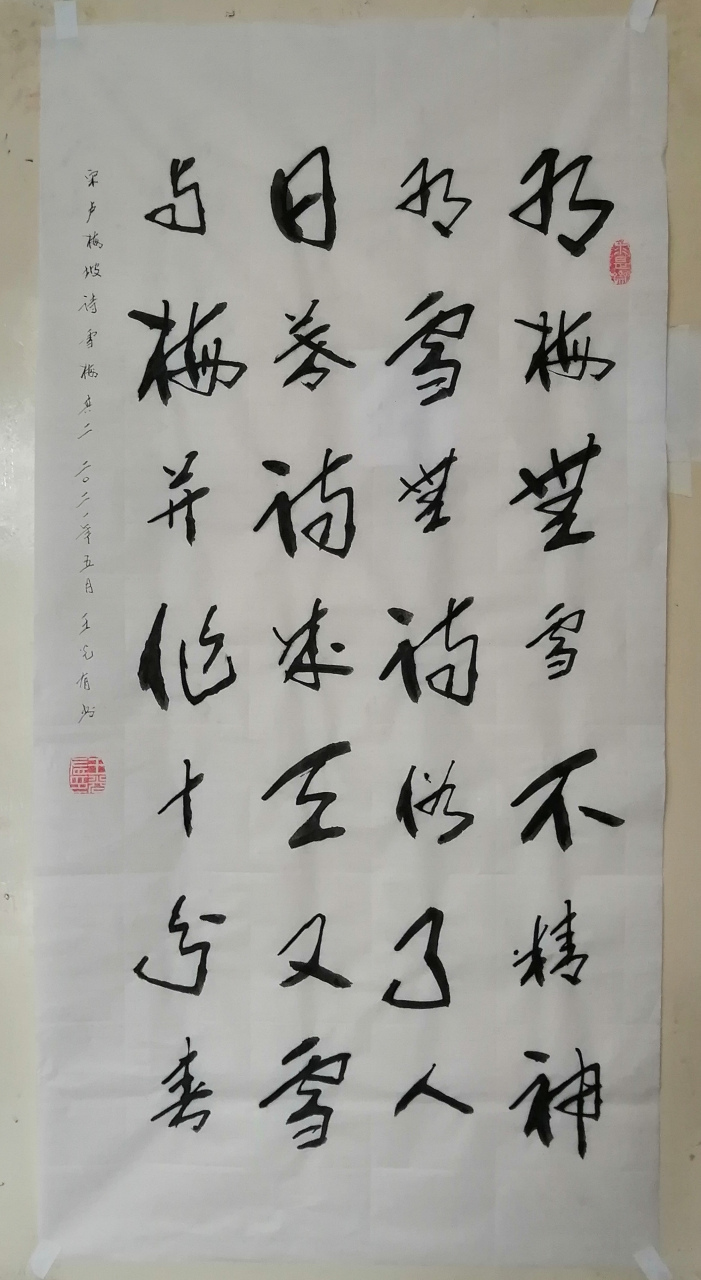 有梅無雪不精神
有雪無詩俗了人
日暮詩成天又雪
与梅并作十分春
宋卢梅坡诗雪梅其二 二〇二一年五月 王光有书